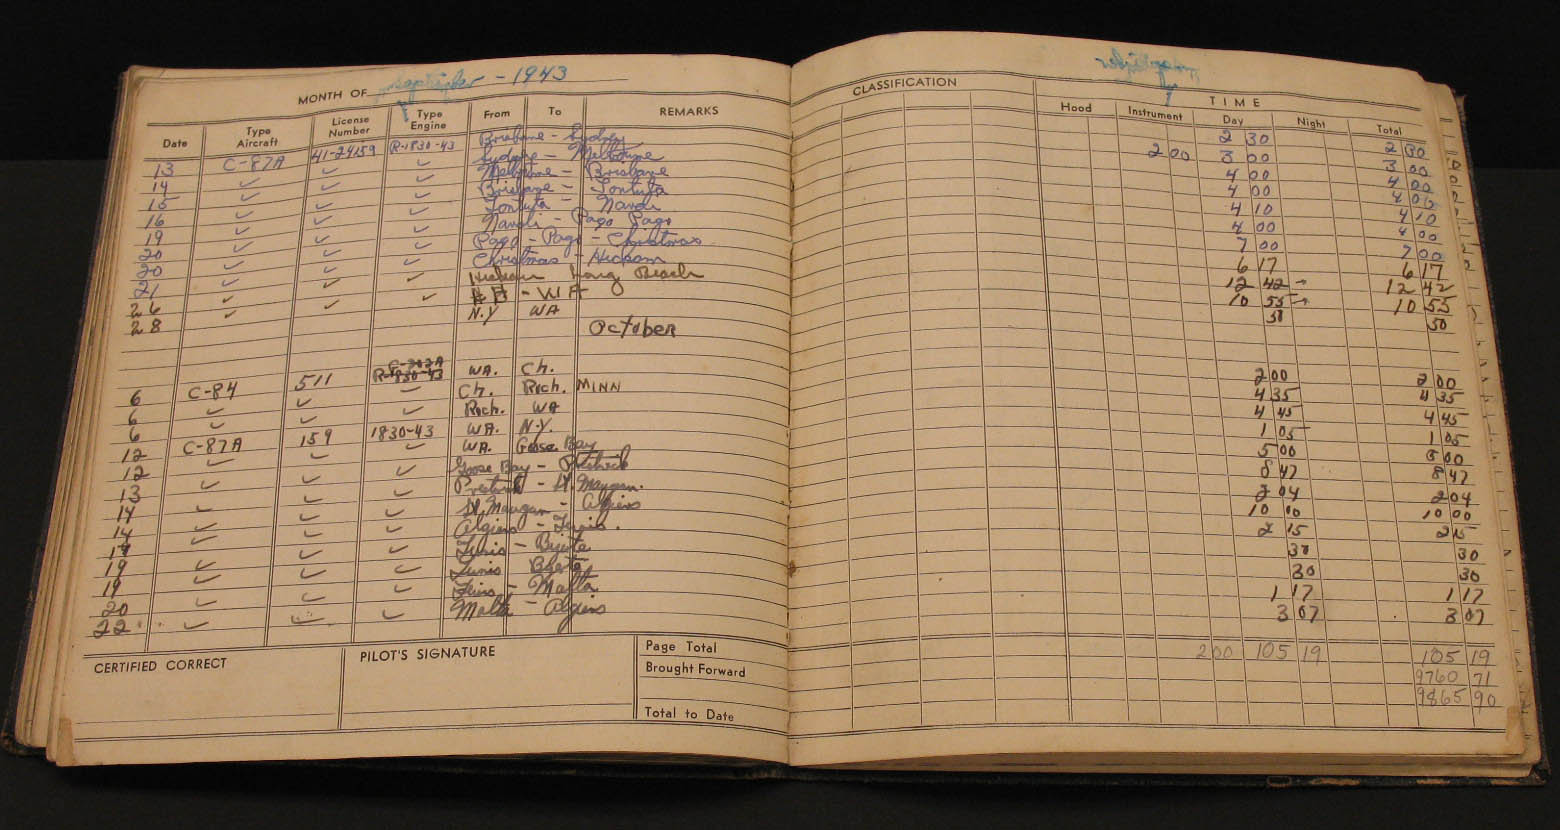 MONTH OF September - 1943
CLASSIFICATION
TIME
Date Type Aircraft License Number Type Engine From To REMARKS Hood Instrument Day Night Total
13 C-87A 41-24159 R-1830-43 Brisbane - Sydney 2 30 2 30
14 ✓ ✓ ✓ Sydney - Melbourne 2 00 3 00 3 00
15 ✓ ✓ ✓ Melbourne - Brisbane 4 00 4 00
16 ✓ ✓ ✓ Brisbane - Tontuta 4 00 4 00
19 ✓ ✓ ✓ Tontuta - Nandi 4 10 4 10
20 ✓ ✓ ✓ Nandi - Pago Pago 4 00 4 00
20 ✓ ✓ ✓ Pago - Pago - Christmas 7 00 7 00
21 ✓ ✓ ✓ Christmas - Hickam 6 17 6 17
26 ✓ ✓ ✓ Hickam Long Beach 12 42 12 42
28 ✓ ✓ ✓ - WA 10 55 10 55
N.Y WA 50 50
October
6 C-84 511 R-1830-43 WA. Ch. 2 00 2 00
6 ✓ ✓ ✓ Ch. Roch. MINN 4 35 4 35
6 ✓ ✓ ✓ Roch. WA 4 45 4 45
12 C-87A 159 1830-43 WA. N.Y. 1 05 1 05
12 ✓ ✓ ✓ WA. Goose Bay 5 00 5 00
13 ✓ ✓ ✓ Goose Bay - Prestwick 8 47 8 47
14 ✓ ✓ ✓ Prestwick - St. Mawgan. 2 04 2 04
14 ✓ ✓ ✓ St. Mawgan - Algiers 10 00 10 00
17 ✓ ✓ ✓ Algiers - Tunis. 2 15 2 15
19 ✓ ✓ ✓ Tunis - Bizerte 30 30
19 ✓ ✓ ✓ Tunis Bizerte 30 30
20 ✓ ✓ ✓ Tunis - Malta 1 17 1 17
22 ✓ ✓ ✓ Malta - Algiers 3 07 3 07
CERTIFIED CORRECT PILOT'S SIGNATURE Page Total 2 00 105 19 105 19
Brought Forward 9760 71
Total to Date 9865 90